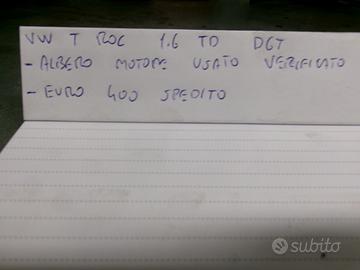 VW T ROC 1.6 TD DGT
- ALBERO MOTORE USATO VERIFICATO
- EURO 400 SPEDITO
subito